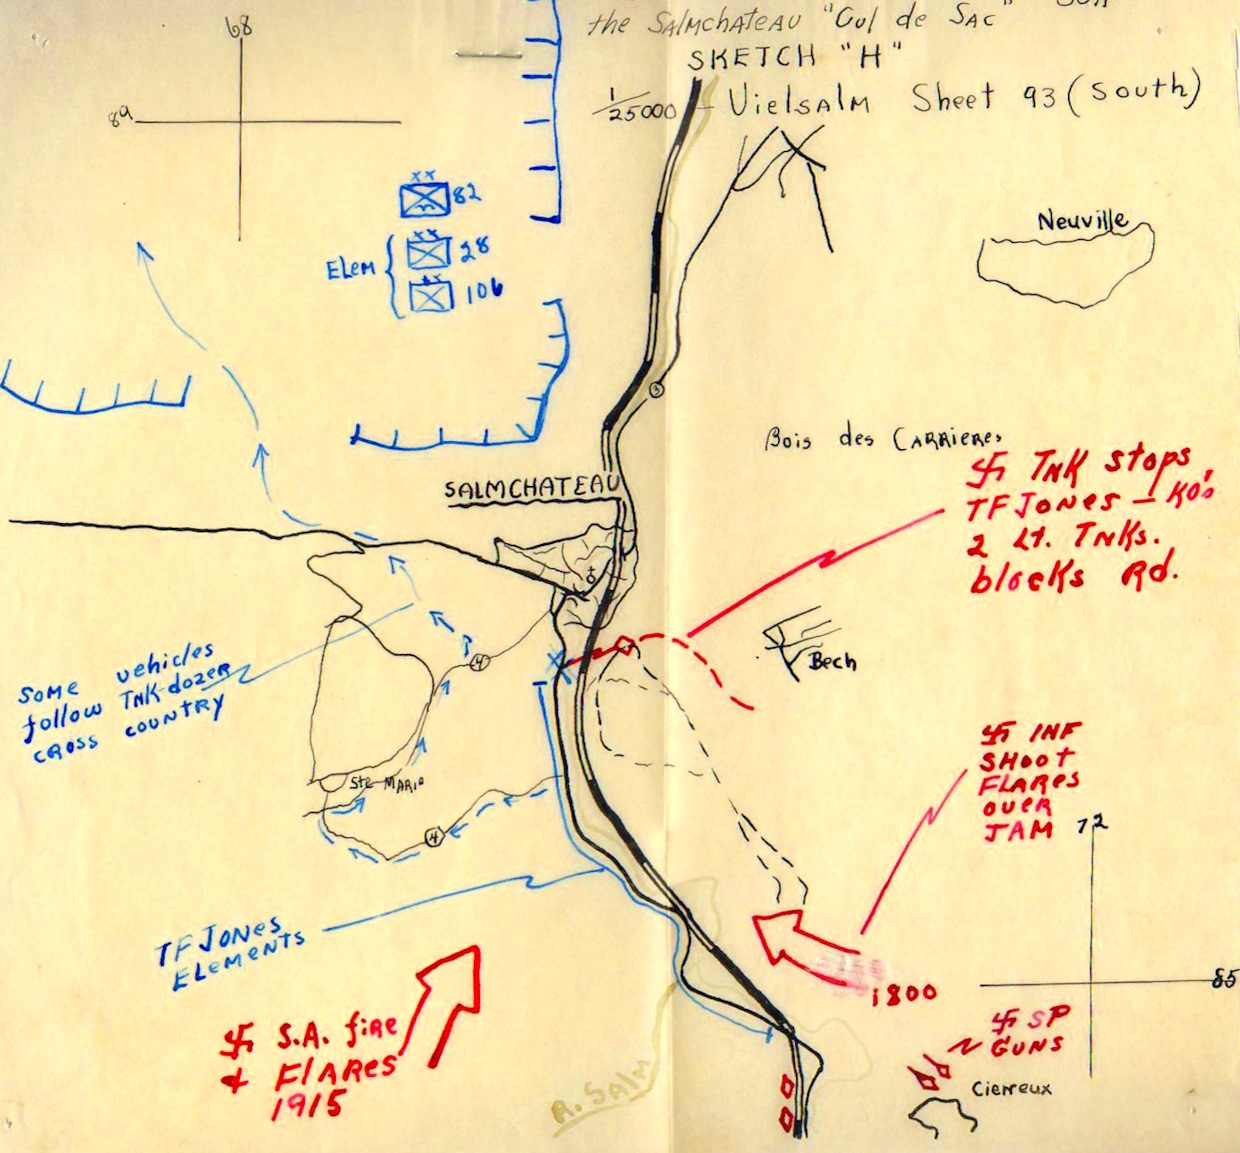 the SALMCHATEAU "Cul de SAC"
SKETCH "H"
1/25000 - VielSALM Sheet 93 (South)
68
89
XX
82
ELEM
XX
28
XX
106
Neuville
3
Bois des CARRIERES
SALMCHATEAU
卐 TNK stops
TF JONES — KO's
2 Lt. TNKS.
blocks Rd.
Bech
4
SOME vehicles
follow TNK-dozer
CROSS COUNTRY
Ste MARIE
4
卐 INF
SHOOT
FLARES
OVER
JAM
72
TF JONES
ELEMENTS
1800
85
卐 S.A. fire
& FLARES
1915
卐 SP
GUNS
Cierreux
R. SALM